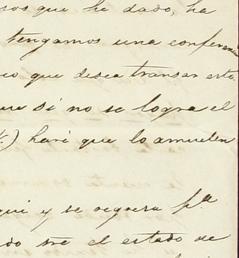 sos que he dado, ha
tengamos una conferen
co que desea transar este
que si no se logra el
haré que lo amuelen
qui y se regresa pa
do sre el estado de